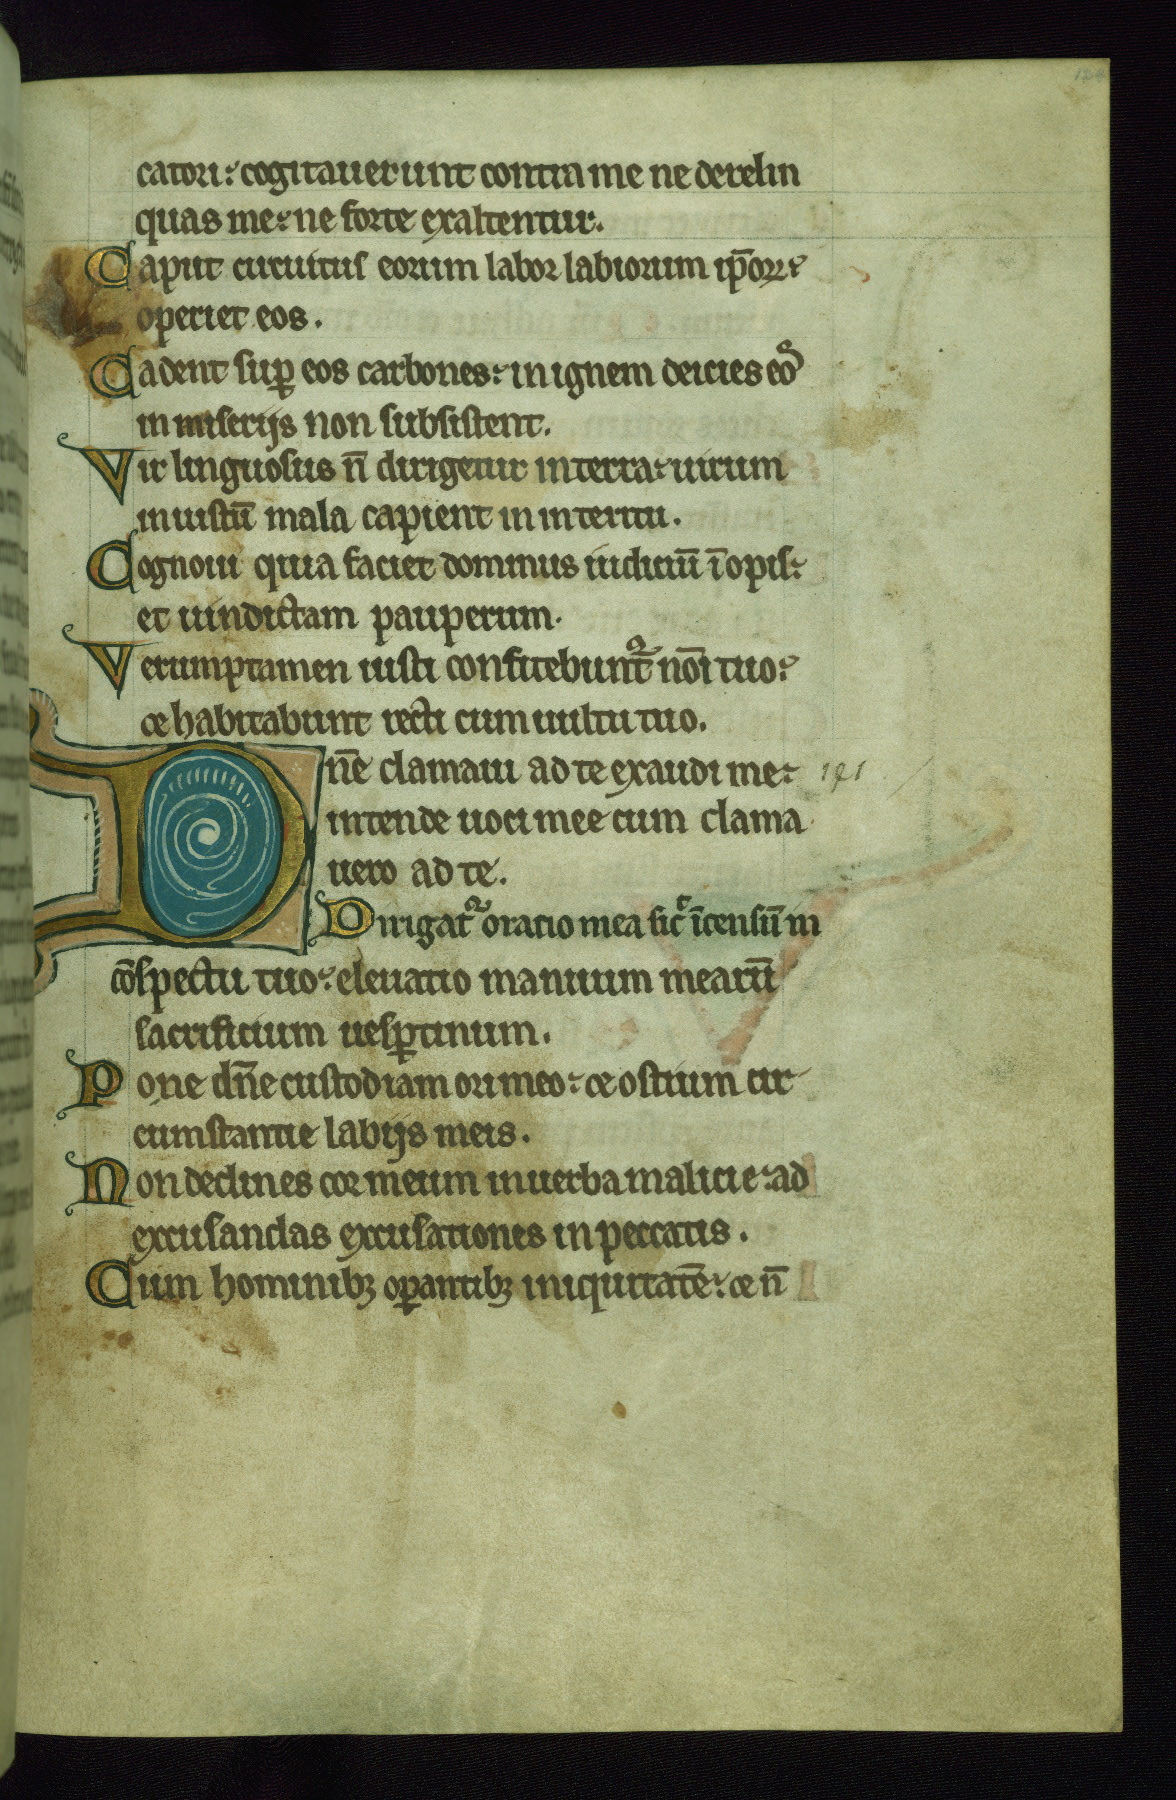 catori: cogitauerunt contra me ne derelin
quas me: ne forte exaltentur.
Caput circuitus eorum labor labiorum ip̄oꝝ:
operiet eos.
Cadent suꝑ eos carbones: in ignem deicies eoꝝ
in miserijs non subsistent.
Vir linguosus n̄ dirigetur in terra: uirum
iniustū mala capient in interitu.
Cognoui quia faciet dominus iudiciū īopis:
et uindictam pauperum.
Verumptamen iusti confitebunt᷑ nōi tuo:
⁊ habitabunt recti cum uultu tuo.
Dn̄e clamaui ad te exaudi me: 141
intende uoci mee cum clama
uero ad te.
Dirigat᷑ oratio mea sic̄ īcensū in
cōspectu tuo: eleuatio manuum mearū
sacrificium uesꝑtinum.
Pone dn̄e custodiam ori meo: ⁊ ostium cir
cumstantie labijs meis.
Non declines cor meum in uerba malicie: ad
excusandas excusationes in peccatis.
Cum hominibꝫ oꝑantibꝫ iniquitatē: ⁊ n̄